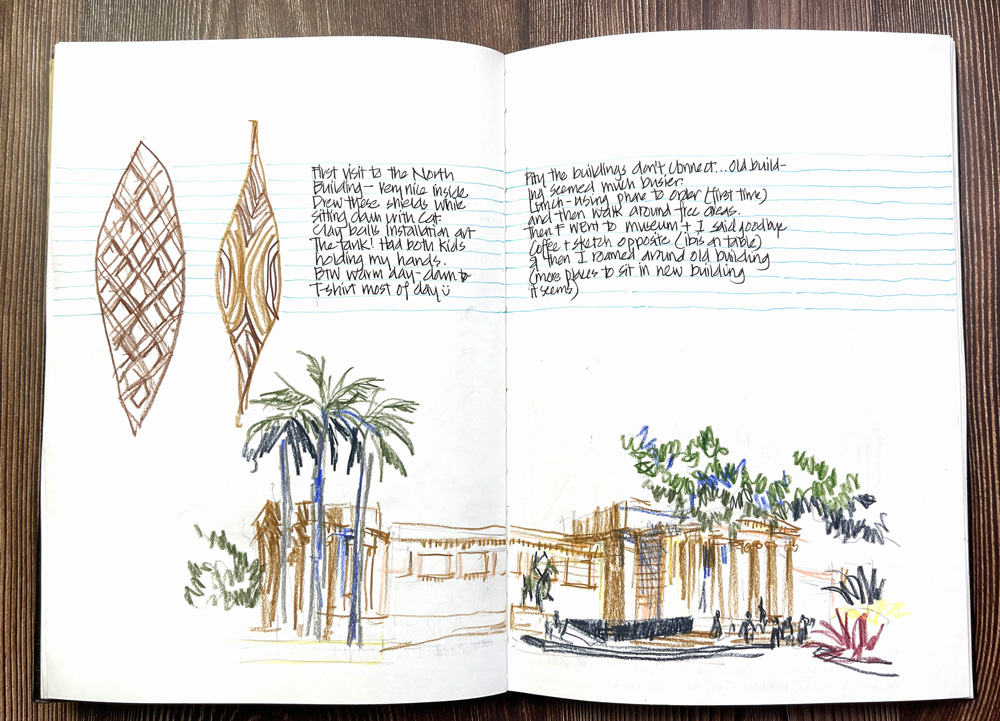 First visit to the North
Building - very nice inside
Drew these shields while
sitting down with Cat.
Clay balls installation art
The tank! Had both kids
holding my hands.
BTW warm day - down to
T-shirt most of day
Pity the buildings don't connect... old build-
ing seemed much busier.
Lunch - using phone to order (first time)
and then walk around free areas.
Then F went to museum + I said goodbye
Coffee + sketch opposite (ibis on table)
& then I roamed around old building
(more places to sit in new building
it seems)